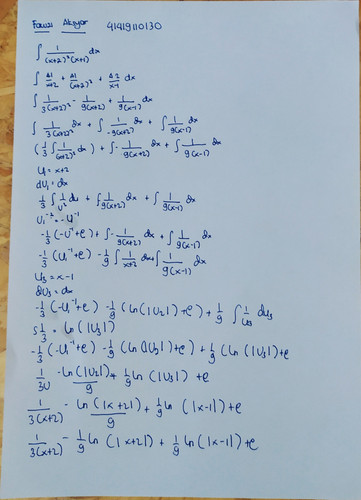 Fauzi Akbar 41419110130
∫ 1/(x+2)²(x+1) dx
∫ A1/x+2 + A1/(x+2)² + A2/x-1 dx
∫ 1/3(x+2)² - 1/9(x+2) + 1/9(x-1) dx
∫ 1/3(x+2)² dx + ∫ 1/-9(x+2) dx + ∫ 1/9(x-1)
(1/3 ∫ 1/(x+2)² dx) + ∫- 1/9(x+2) dx + ∫ 1/9(x-1) dx
U1 = x+2
dU1 = dx
1/3 ∫ 1/U² du + ∫ 1/9(x+2) dx + ∫ 1/9(x-1) dx
U1⁻² = -U⁻¹
-1/3 (-U⁻¹+c) + ∫- 1/9(x+2) dx + ∫ 1/9(x-1) dx
-1/3 (U1⁻¹+c) - 1/9 ∫ 1/x+2 dx + ∫ 1/9(x-1) dx
U3 = x-1
dU3 = dx
-1/3 (-U1⁻¹+c) - 1/9 (ln(|U2|)+c) + 1/9 ∫ 1/U3 dU3
= ln(|U3|)
-1/3 (-U1⁻¹+c) - 1/9 (ln(|U3|)+c) + 1/9 (ln(|U3|)+c
1/3U - ln(|U2|)/9 + 1/9 ln(|U3|) + c
1/3(x+2) - ln(|x+2|)/9 + 1/9 ln(|x-1|) + c
1/3(x+2) - 1/9 ln(|x+2|) + 1/9 ln(|x-1|) + c